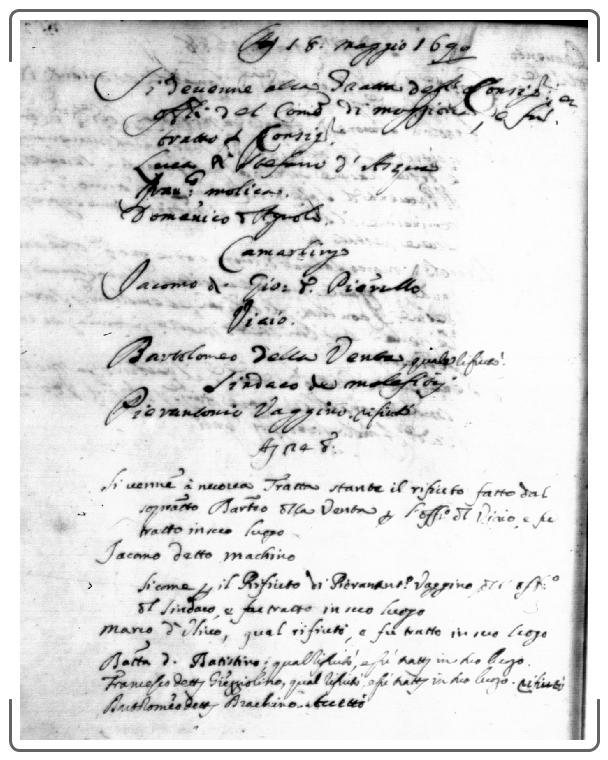 18. maggio 1690
Si devenne alla Tratta degl. Consig.ri et
del Com.e di e fu
tratto p Consig.r
Luca di Stefano d'Acqua
Fran.co molica.
Domenico d'Agnolo.
Camarlingo
Jacomo di Gior: d. Pierello
Vicio.
Bartolomeo della Venta, quale rifiutò.
Sindaco de malefitij
Pierantonio Vaggino, rifiutò
Aj 24 d.
Si venne à nuova Tratta stante il rifiuto fatto dal
sopratto Barteo della Venta p l'offo dl Vicio, e fu
tratto in suo luogo
Jacomo detto machino
Sicome p il Rifiuto di Pierant.o Vaggino, dll'off.o
dl Sindaco, e fu tratto in suo luogo
Marco d'Ulivo, qual rifiutò, e fu tratto in suo luogo
Batta d. Batistino, qual rifiutò, e fu tratto in suo luogo.
Francesco detto qual rifiutò, e fu tratto in suo luogo. rifiutò
Bartolomeo detto Brachino. Accettò